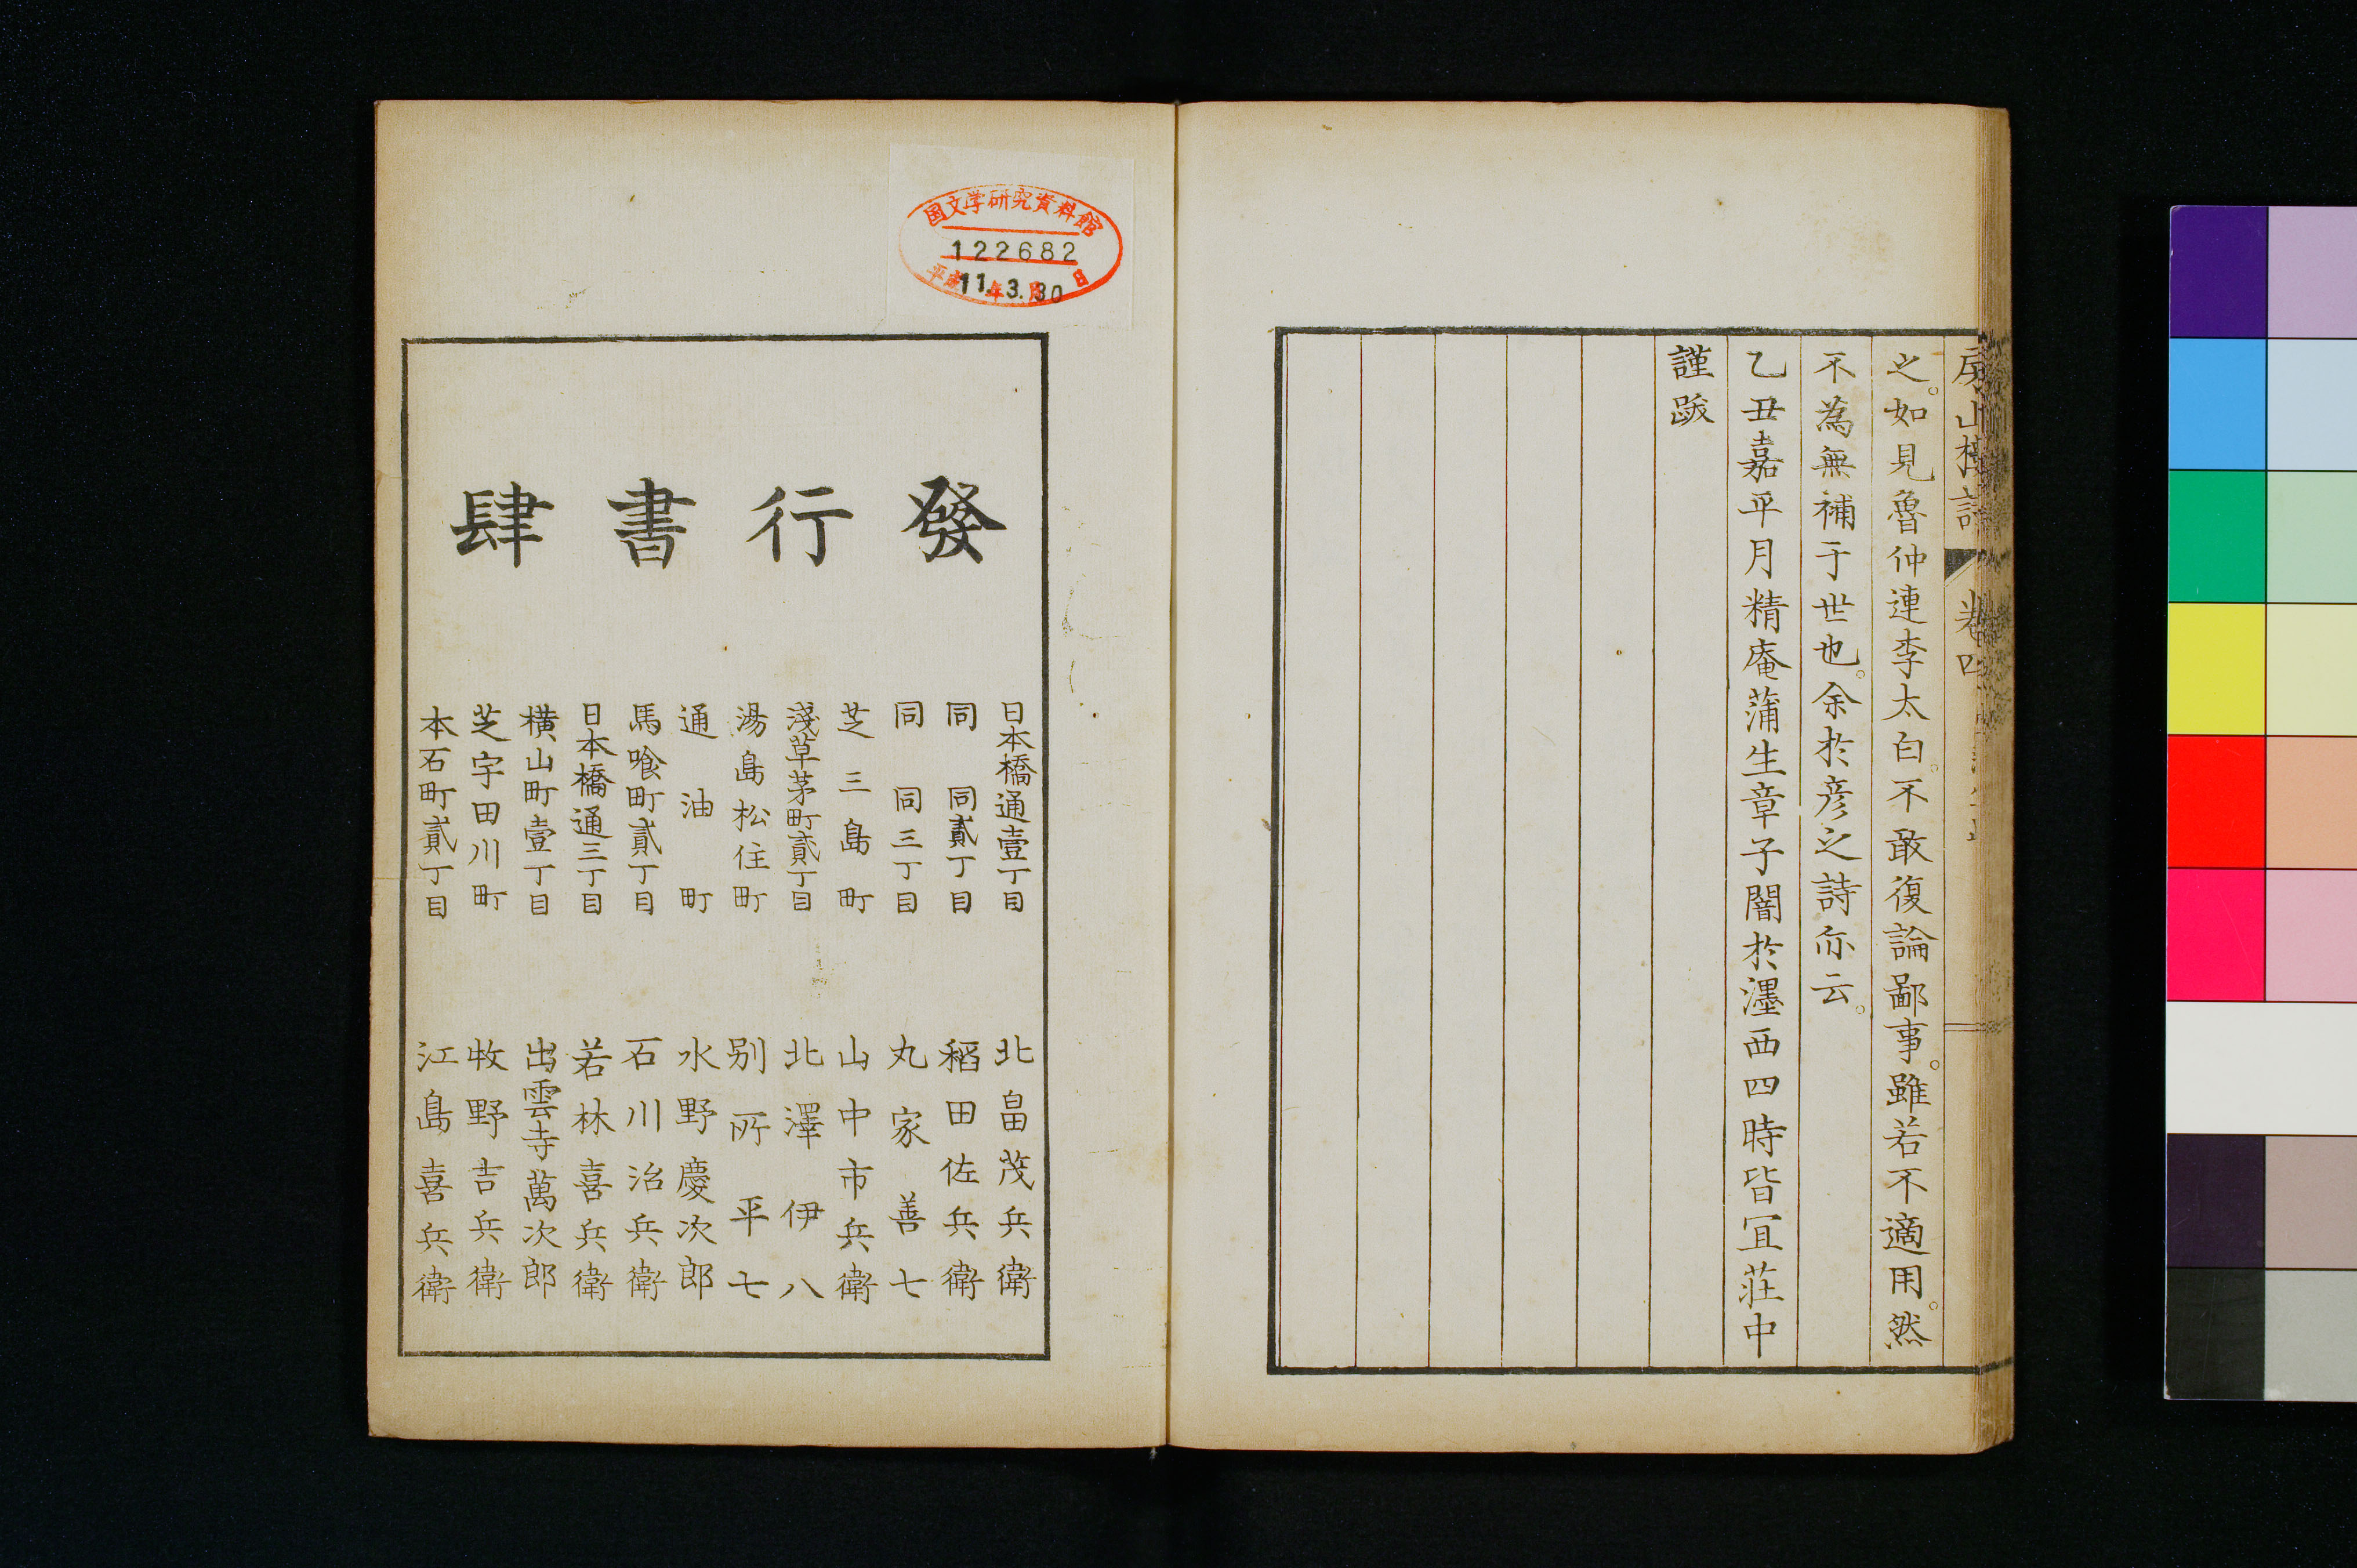 之。如見魯仲連李太白。不敢復論鄙事。雖若不適用。然
不為無補于世也。余於彦之詩亦云。
乙丑嘉平月精庵蒲生章子闇於濹西四時皆宜荘中
謹跋
国文学研究資料館
122682
平成11年3月30日
發行書肆
日本橋通壹丁目 北畠茂兵衛
同 同貳丁目 稻田佐兵衛
同 同三丁目 丸家善七
芝三島町 山中市兵衛
淺草茅町貳丁目 北澤伊八
湯島松住町 别所平七
通油町 水野慶次郎
馬喰町貳丁目 石川治兵衛
日本橋通三丁目 若林喜兵衛
横山町壹丁目 出雲寺萬次郎
芝宇田川町 牧野吉兵衛
本石町貳丁目 江島喜兵衛